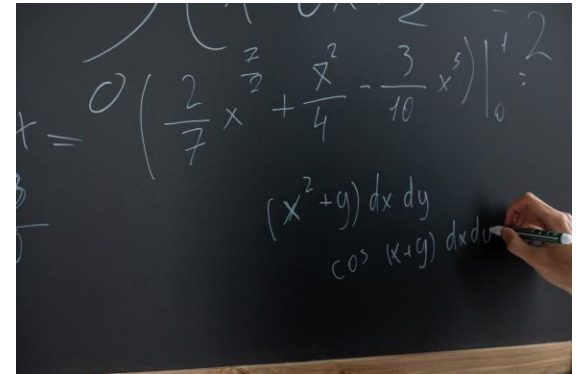 x + 2 = 2
x = 0 ( 2/7 x^(7/2) + x^2/4 - 3/10 x^5 ) |_0^1 =
(x^2+y) dx dy
cos (x+y) dx dy